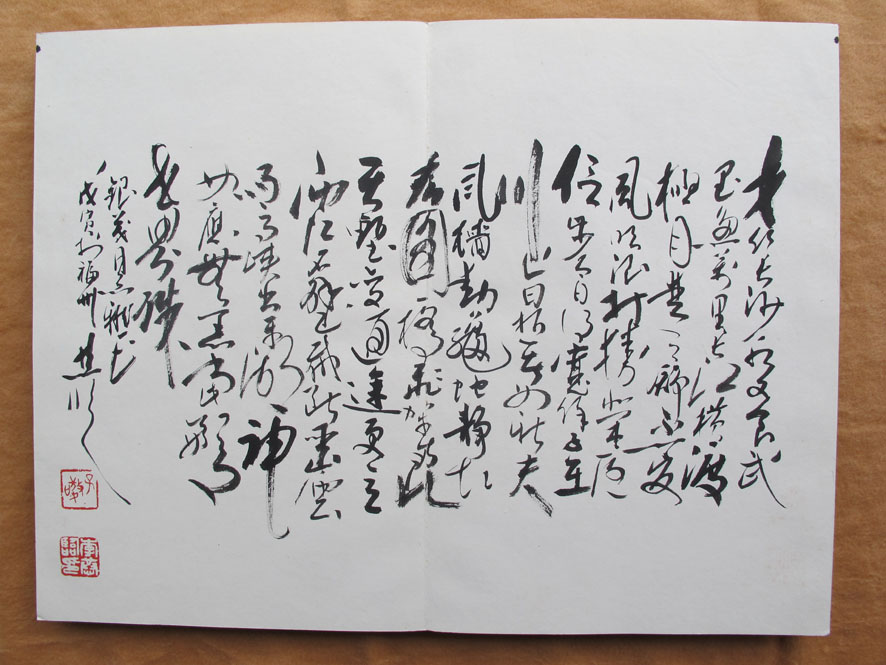 才饮长沙水又食武
昌鱼万里长江横渡
极目楚天舒不管
風吹浪打胜似闲庭
信步今日得宽馀子在
川上曰逝者如斯夫
風樯動龜蛇静起
宏图一橋飛架南北
天堑变通途更立
西江石壁截断巫山雲
雨高峡出平湖神
女應無恙當驚
世界殊
銀茂同志雅正
戊寅於福州